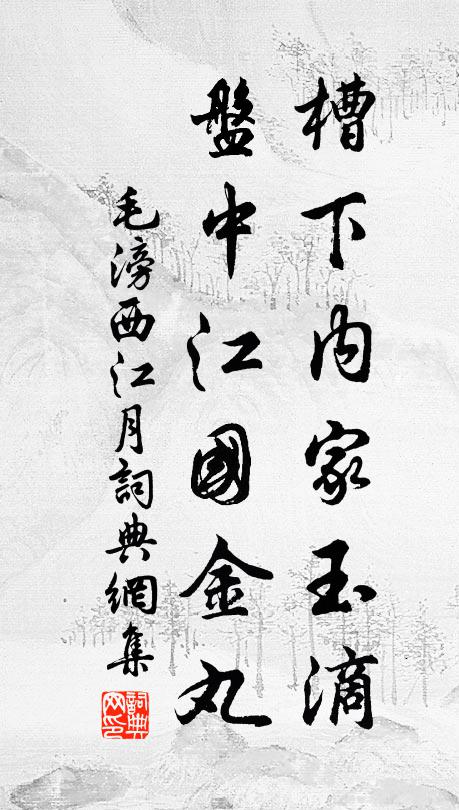 槽下内家玉滴
盤中江國金丸
毛滂西江月詞典網集
詞典网印